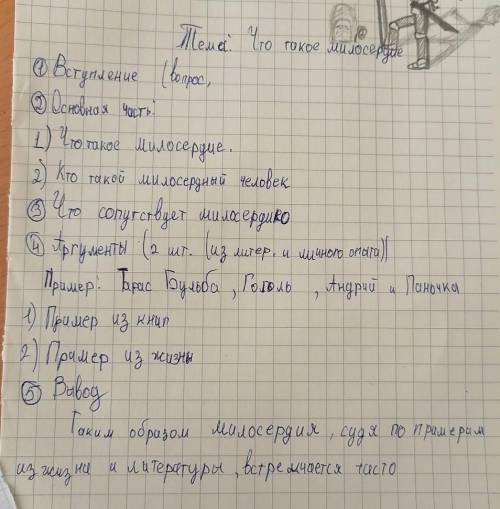 Тема: Что такое милосердие
① Вступление (вопрос,
② Основная часть:
1) Что такое милосердие.
2) Кто такой милосердный человек
③ Что сопутствует милосердию
④ Аргументы (2 шт. (из литер. и личного опыта)
Пример: Тарас Бульба, Гоголь, Андрий и Паночка
1) Пример из книг
2) Пример из жизны
⑤ Вывод
Таким образом милосердия, судя по примерам
из жизни и литературы, встречается часто